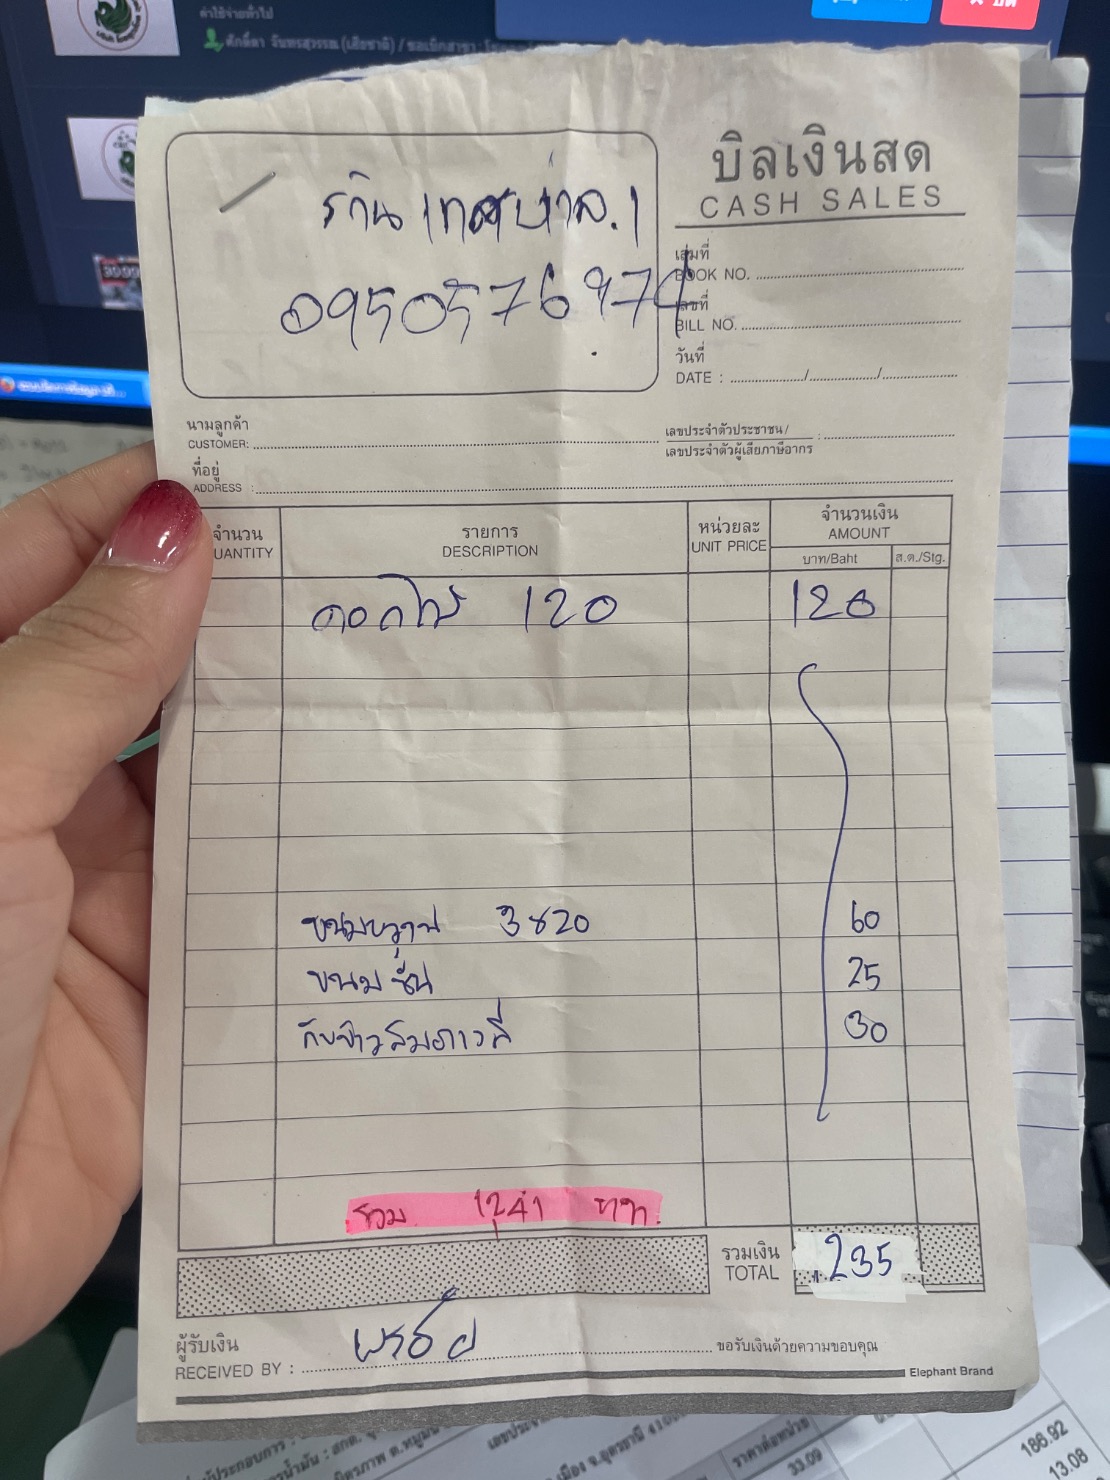 ค่าใช้จ่ายทั่วไป
บิลเงินสด
CASH SALES
ร้าน เทศบาล.1
0950576974
เล่มที่
BOOK NO.
เลขที่
BILL NO.
วันที่
DATE : ......../......../........
นามลูกค้า
CUSTOMER:
เลขประจำตัวประชาชน/
เลขประจำตัวผู้เสียภาษีอากร :
ที่อยู่
ADDRESS :
จำนวน รายการ หน่วยละ จำนวนเงิน
UANTITY DESCRIPTION UNIT PRICE AMOUNT
บาท/Baht ส.ต./Stg.
ดอกไม้ 120 120
ขนมหวาน 3x20 60
ขนมชั้น 25
30
รวม
รวมเงิน
TOTAL 235
ผู้รับเงิน
RECEIVED BY :
ขอรับเงินด้วยความขอบคุณ
Elephant Brand
ราคาต่อหน่วย
33.09
186.92
13.08